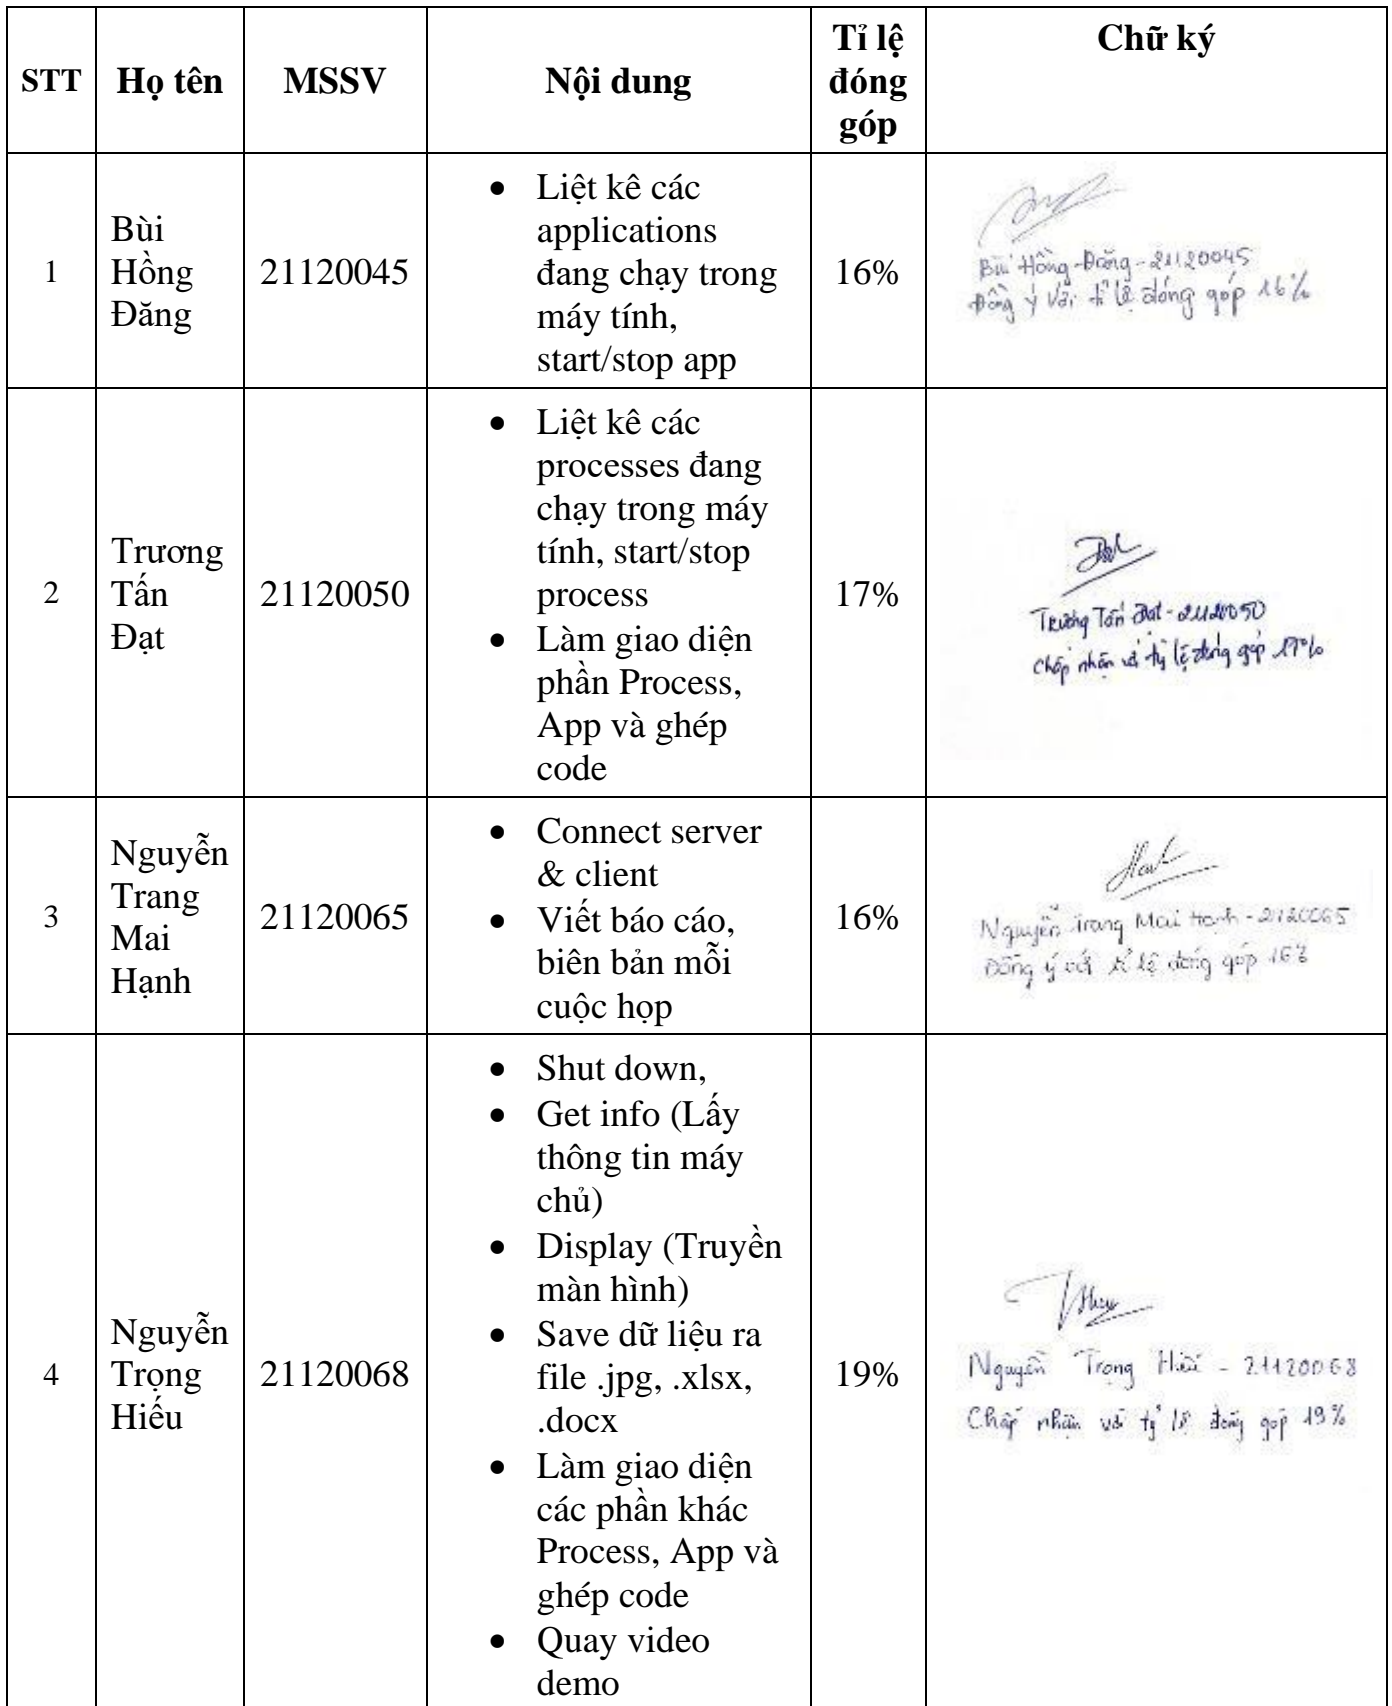 STT
Họ tên
MSSV
Nội dung
Tỉ lệ
đóng
góp
Chữ ký
1
Bùi
Hồng
Đăng
21120045
• Liệt kê các
applications
đang chạy trong
máy tính,
start/stop app
16%
Bùi Hồng Đăng - 21120045
Đồng ý với tỉ lệ đóng góp 16%
2
Trương
Tấn
Đạt
21120050
• Liệt kê các
processes đang
chạy trong máy
tính, start/stop
process
• Làm giao diện
phần Process,
App và ghép
code
17%
Đạt
Trương Tấn Đạt - 21120050
Chấp nhận với tỷ lệ đóng góp 17%
3
Nguyễn
Trang
Mai
Hạnh
21120065
• Connect server
& client
• Viết báo cáo,
biên bản mỗi
cuộc họp
16%
Nguyễn Trang Mai Hạnh - 2120065
Đồng ý với tỉ lệ đóng góp 16%
4
Nguyễn
Trọng
Hiếu
21120068
• Shut down,
• Get info (Lấy
thông tin máy
chủ)
• Display (Truyền
màn hình)
• Save dữ liệu ra
file .jpg, .xlsx,
.docx
• Làm giao diện
các phần khác
Process, App và
ghép code
• Quay video
demo
19%
Nguyễn Trọng Hiếu - 21120068
Chấp nhận với tỷ lệ đóng góp 19%